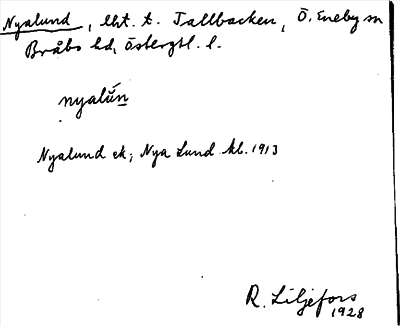 Nyalund, lht. t. Tallbacken, Ö. Eneby sn
Bråbo hd, Östergtl. l.
nyalún
Nyalund ek; Nya Lund kb. 1913
R. Liljefors
1928